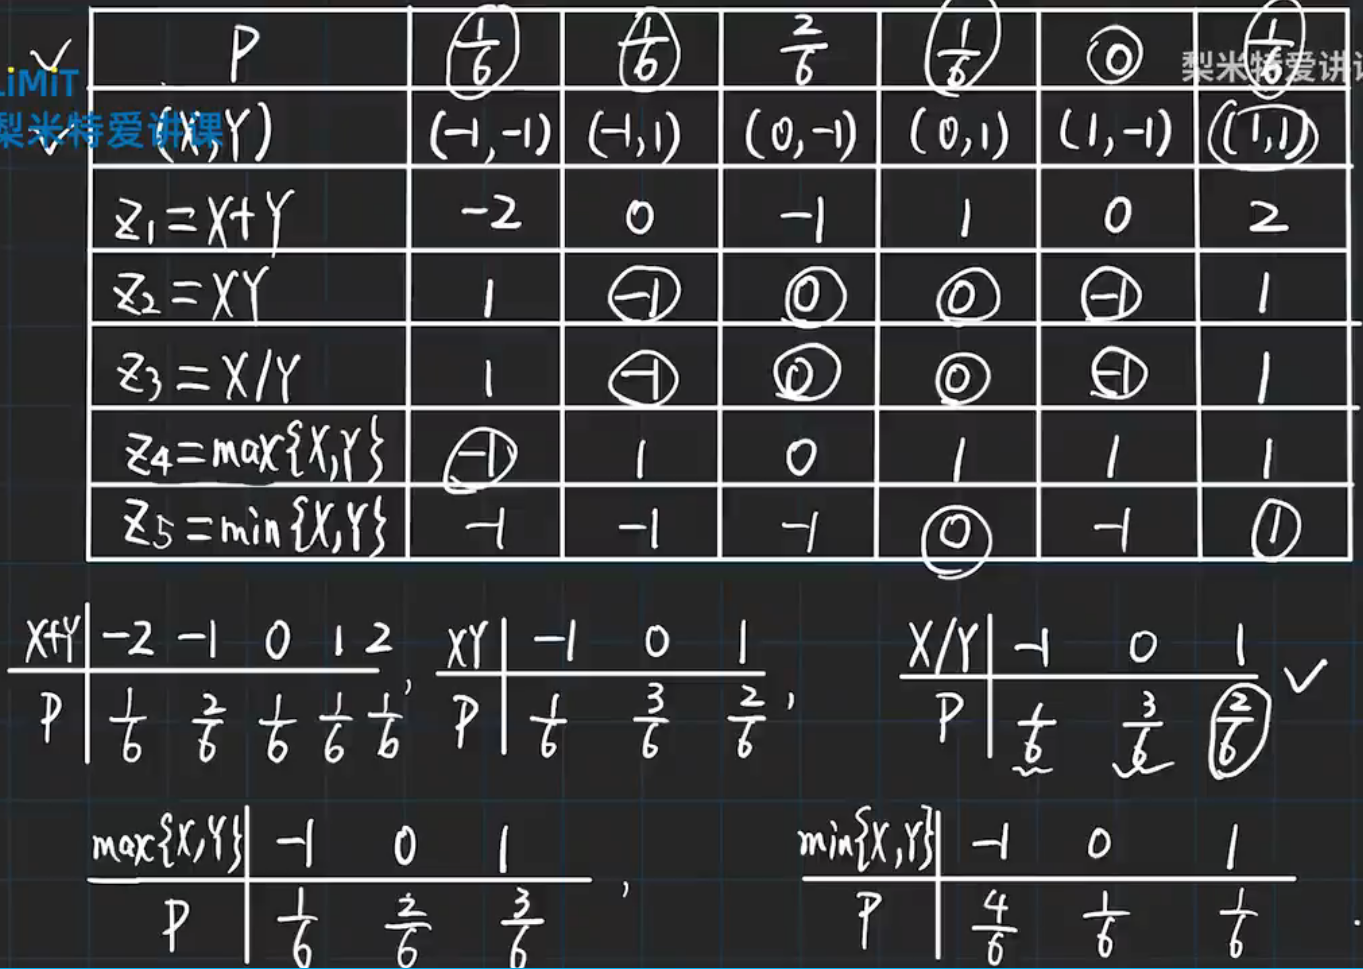 P 1/6 1/6 2/6 1/6 0 1/6
梨米特爱讲
LiMiT
梨米特爱讲课
(X,Y) (-1,-1) (-1,1) (0,-1) (0,1) (1,-1) (1,1)
Z₁=X+Y -2 0 -1 1 0 2
Z₂=XY 1 -1 0 0 -1 1
Z₃=X/Y 1 -1 0 0 -1 1
Z₄=max{X,Y} -1 1 0 1 1 1
Z₅=min{X,Y} -1 -1 -1 0 -1 1
X+Y -2 -1 0 1 2
P 1/6 2/6 1/6 1/6 1/6,
XY -1 0 1
P 1/6 3/6 2/6,
X/Y -1 0 1
P 1/6 3/6 2/6
max{X,Y} -1 0 1
P 1/6 2/6 3/6,
min{X,Y} -1 0 1
P 4/6 1/6 1/6.